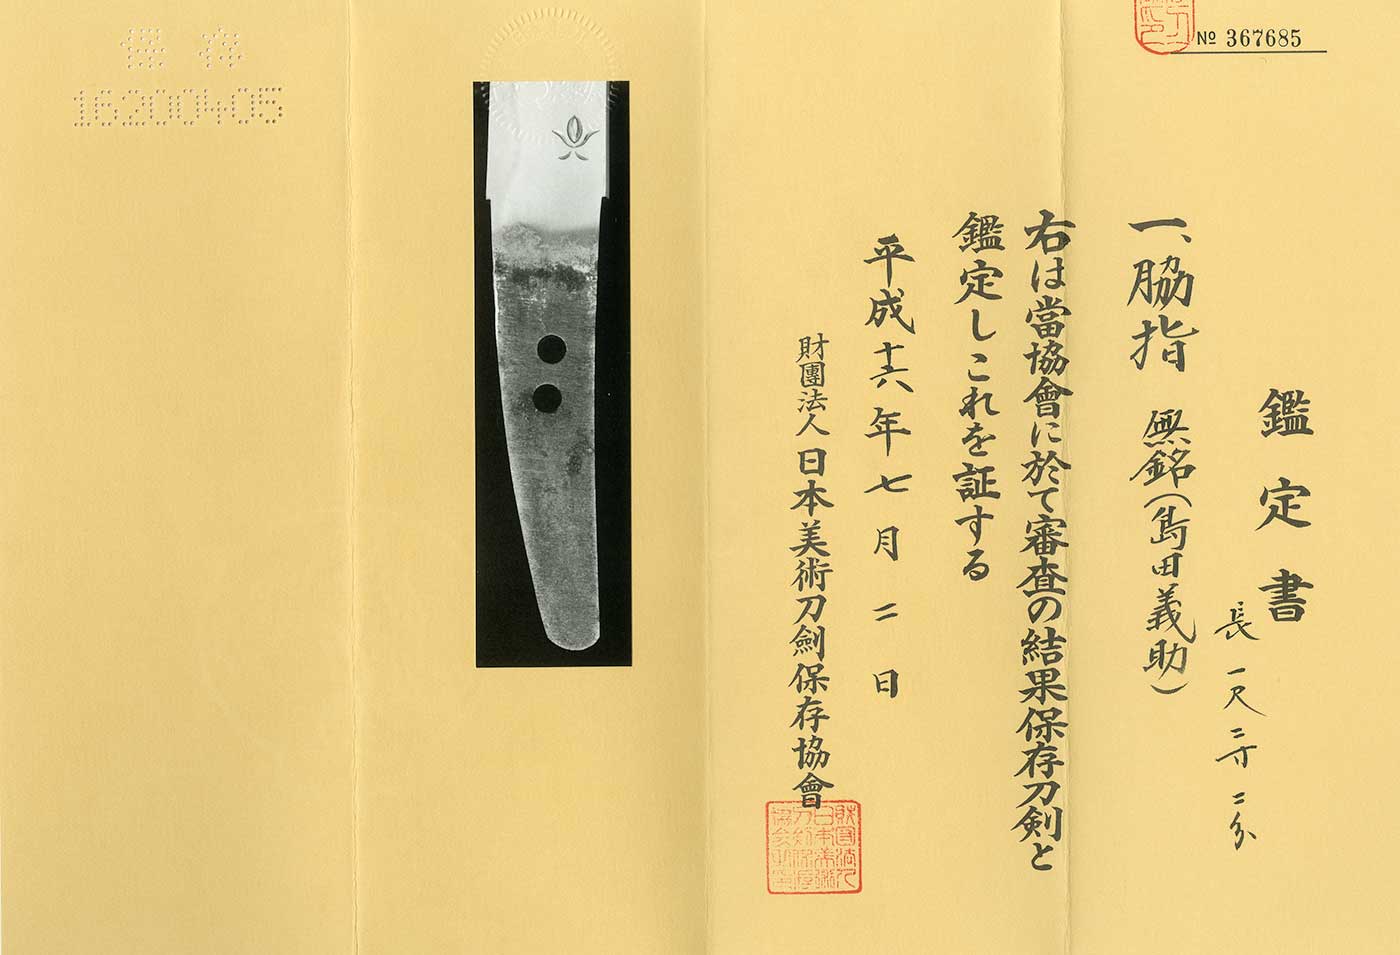 № 367685
鑑定書
長一尺二寸二分
一、脇指 無銘(島田義助)
右は當協會に於て審査の結果保存刀剣と
鑑定しこれを証する
平成十六年七月二日
財團法人日本美術刀劍保存協會
保存
16200405